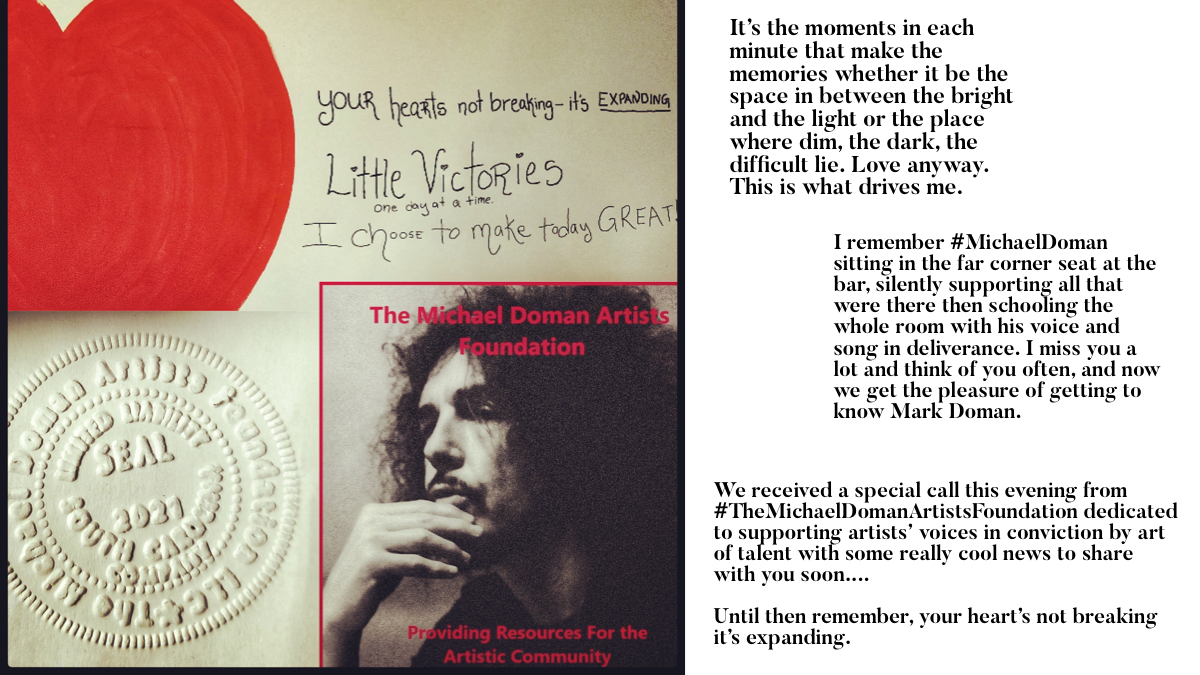 YOUR hearts not breaking- it's EXPANDING
Little Victories
one day at a time.
I choose to make today GREAT!
Doman Artists Foundation LLC ★ The Michael
LIMITED LIABILITY
SEAL
2021
SOUTH CAROLINA
COMPANY
The Michael Doman Artists
Foundation
Providing Resources For the
Artistic Community
It's the moments in each
minute that make the
memories whether it be the
space in between the bright
and the light or the place
where dim, the dark, the
difficult lie. Love anyway.
This is what drives me.
I remember #MichaelDoman
sitting in the far corner seat at the
bar, silently supporting all that
were there then schooling the
whole room with his voice and
song in deliverance. I miss you a
lot and think of you often, and now
we get the pleasure of getting to
know Mark Doman.
We received a special call this evening from
#TheMichaelDomanArtistsFoundation dedicated
to supporting artists' voices in conviction by art
of talent with some really cool news to share
with you soon....
Until then remember, your heart's not breaking
it's expanding.